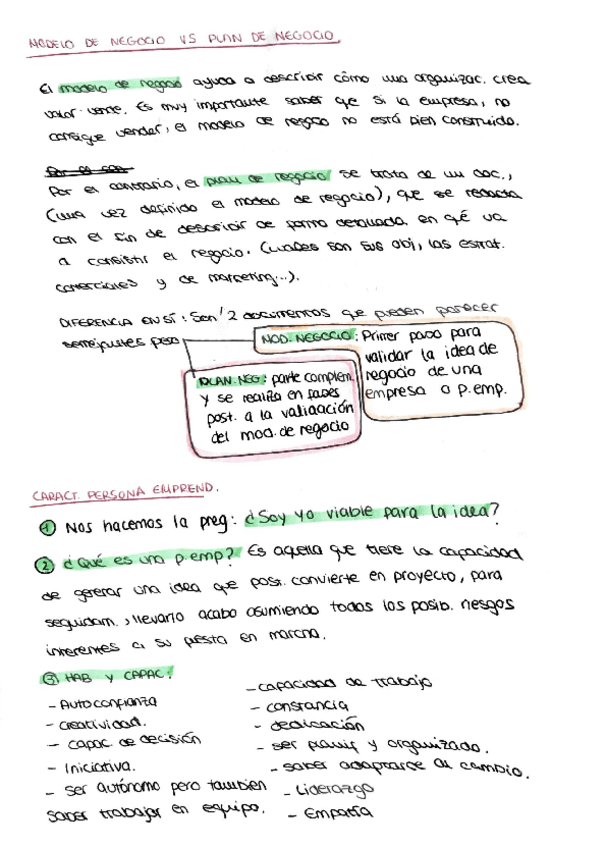 MODELO DE NEGOCIO VS PLAN DE NEGOCIO.
El modelo de negocio ayuda a describir cómo una organizac. crea
valor vente. Es muy importante saber que si la empresa, no
consigue vender, el modelo de negocio no está bien construido.
Por el con
Por el contrario, el plan de negocio se trata de un doc.,
(una vez definido el modelo de negocio), que se redacta
con el fin de describir de forma detallada en qué va
a consistir el negocio. (cuales son sus obj, las estrat.
comerciales y de marketing...).
DIFERENCIA EN SÍ: Son 2 documentos que pueden parecer
semejantes pero
MOD. NEGOCIO: Primer paso para
validar la idea de
negocio de una
empresa o p.emp.
PLAN. NEG: parte complem
y se realiza en fases
post. a la validación
del mod. de negocio
CARACT. PERSONA EMPREND.
1 Nos hacemos la preg: ¿Soy yo viable para la idea?
2 ¿Qué es una p.emp? Es aquella que tiene la capacidad
de generar una idea que post. convierte en proyecto, para
seguidam., llevarlo acabo asumiendo todos los posib. riesgos
inherentes a su puesta en marcha.
3 HAB y CAPAC:
- Autoconfianza
- creatividad.
- capac. de decisión
- Iniciativa.
- ser autónomo pero tambien
saber trabajar en equipo.
- capacidad de trabajo
- constancia
- dedicación
- ser planif y organizado.
- saber adaptarse al cambio.
- Liderazgo
- Empatía